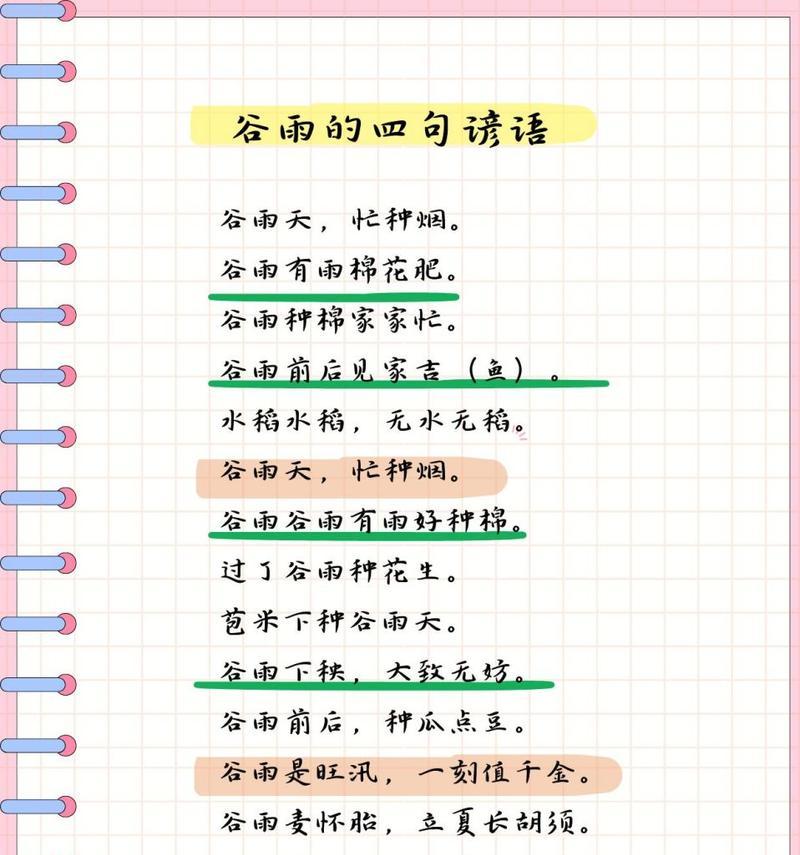 谷雨的四句谚语
谷雨天，忙种烟。
谷雨有雨棉花肥。
谷雨种棉家家忙。
谷雨前后见家吉（鱼）。
水稻水稻，无水无稻。
谷雨天，忙种烟。
谷雨谷雨有雨好种棉。
过了谷雨种花生。
苞米下种谷雨天。
谷雨下秧，大致无妨。
谷雨前后，种瓜点豆。
谷雨是旺汛，一刻值千金。
谷雨麦怀胎，立夏长胡须。